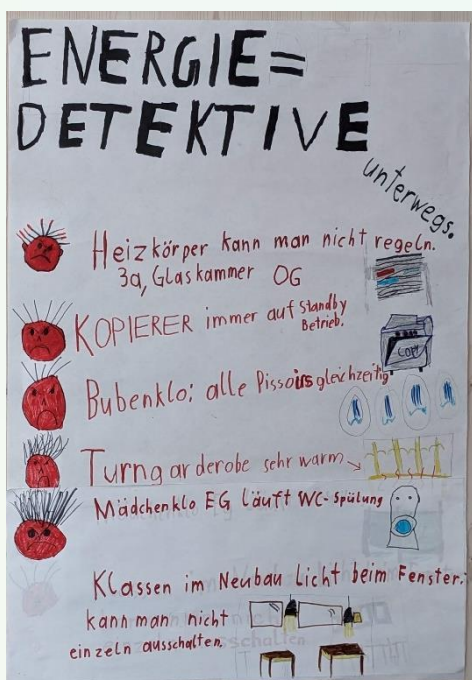 ENERGIE=
DETEKTIVE
unterwegs.
Heizkörper kann man nicht regeln.
3a, Glaskammer OG
KOPIERER immer auf Standby
Betrieb.
COPY
Bubenklo: alle Pissoirs gleichzeitig.
Turngarderobe sehr warm →
Mädchenklo EG läuft WC-Spülung
Klassen im Neubau Licht beim Fenster.
kann man nicht
einzeln ausschalten.